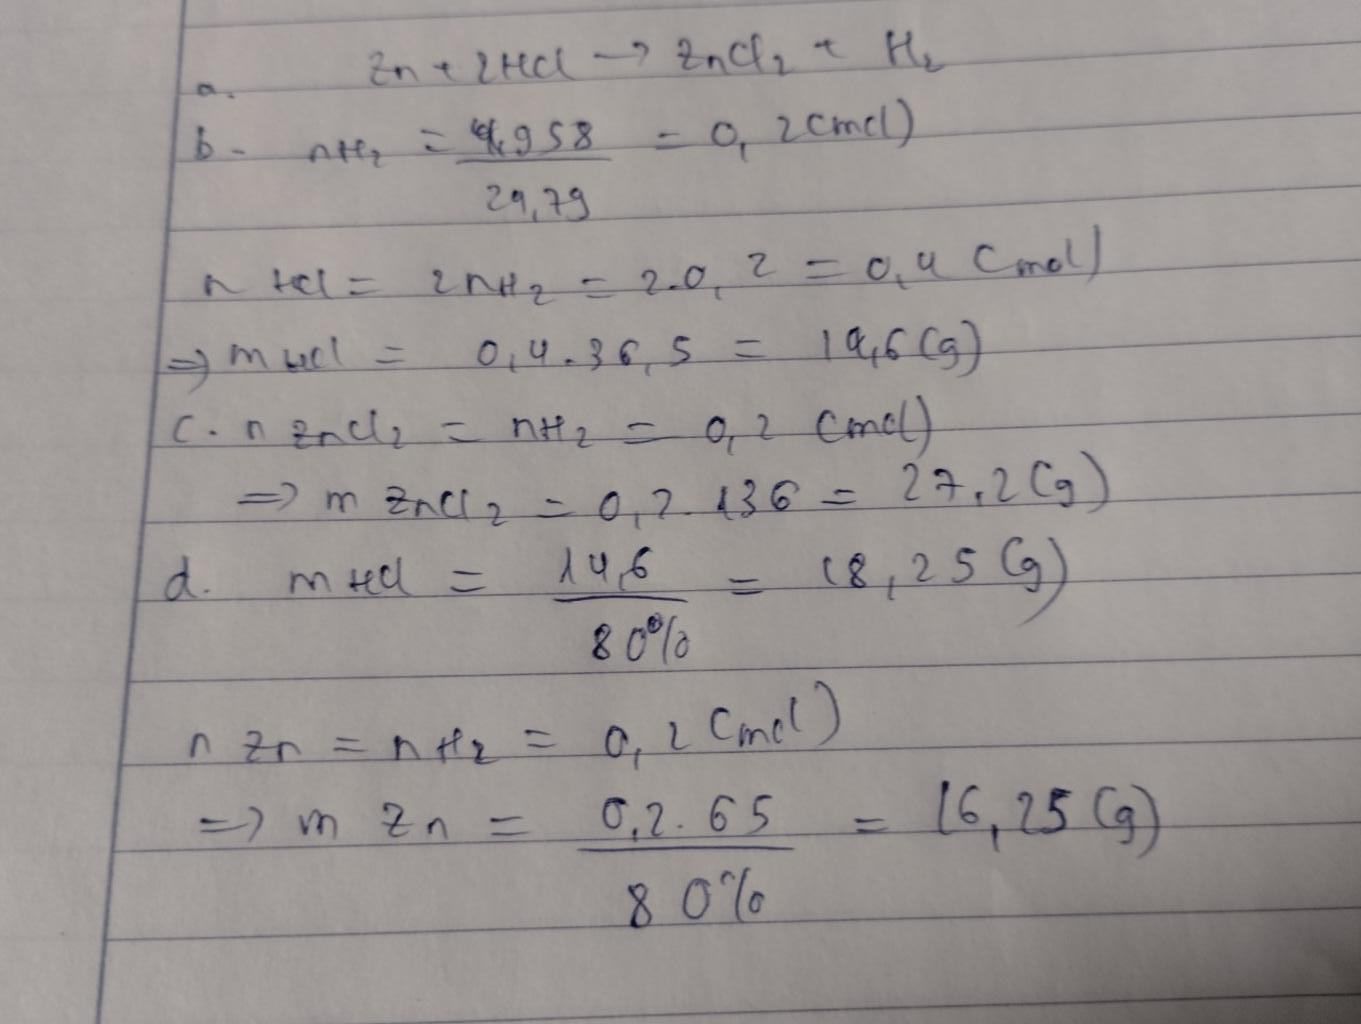 a. Zn + 2HCl → ZnCl2 + H2
b. nH2 = 4,958 / 29,79 = 0,2 (mol)
n HCl = 2nH2 = 2.0,2 = 0,4 (mol)
=> m HCl = 0,4.36,5 = 14,6 (g)
c. n ZnCl2 = nH2 = 0,2 (mol)
=> m ZnCl2 = 0,2.136 = 27,2 (g)
d. m HCl = 14,6 / 80% = 18,25 (g)
n Zn = nH2 = 0,2 (mol)
=> m Zn = 0,2.65 / 80% = 16,25 (g)